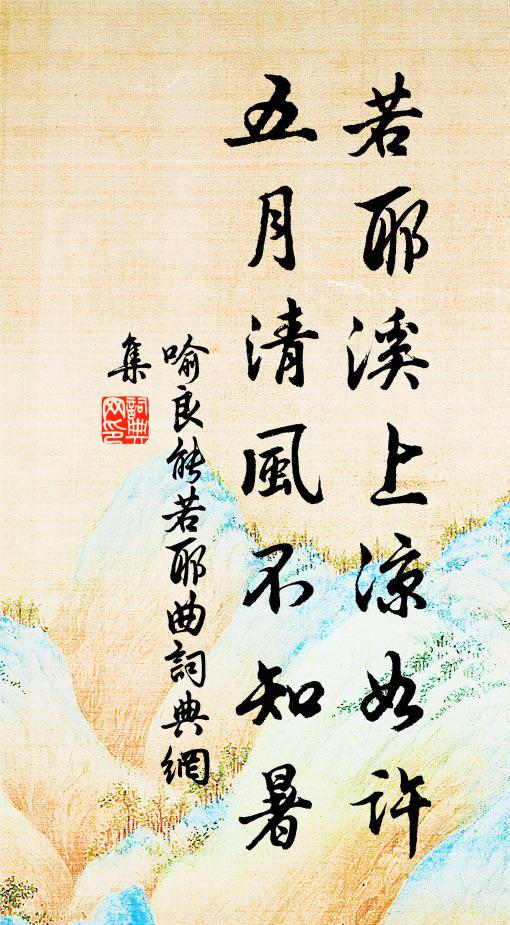 若耶溪上涼如許
五月清風不知暑
喻良能若耶曲詞典網
集
詞典網印